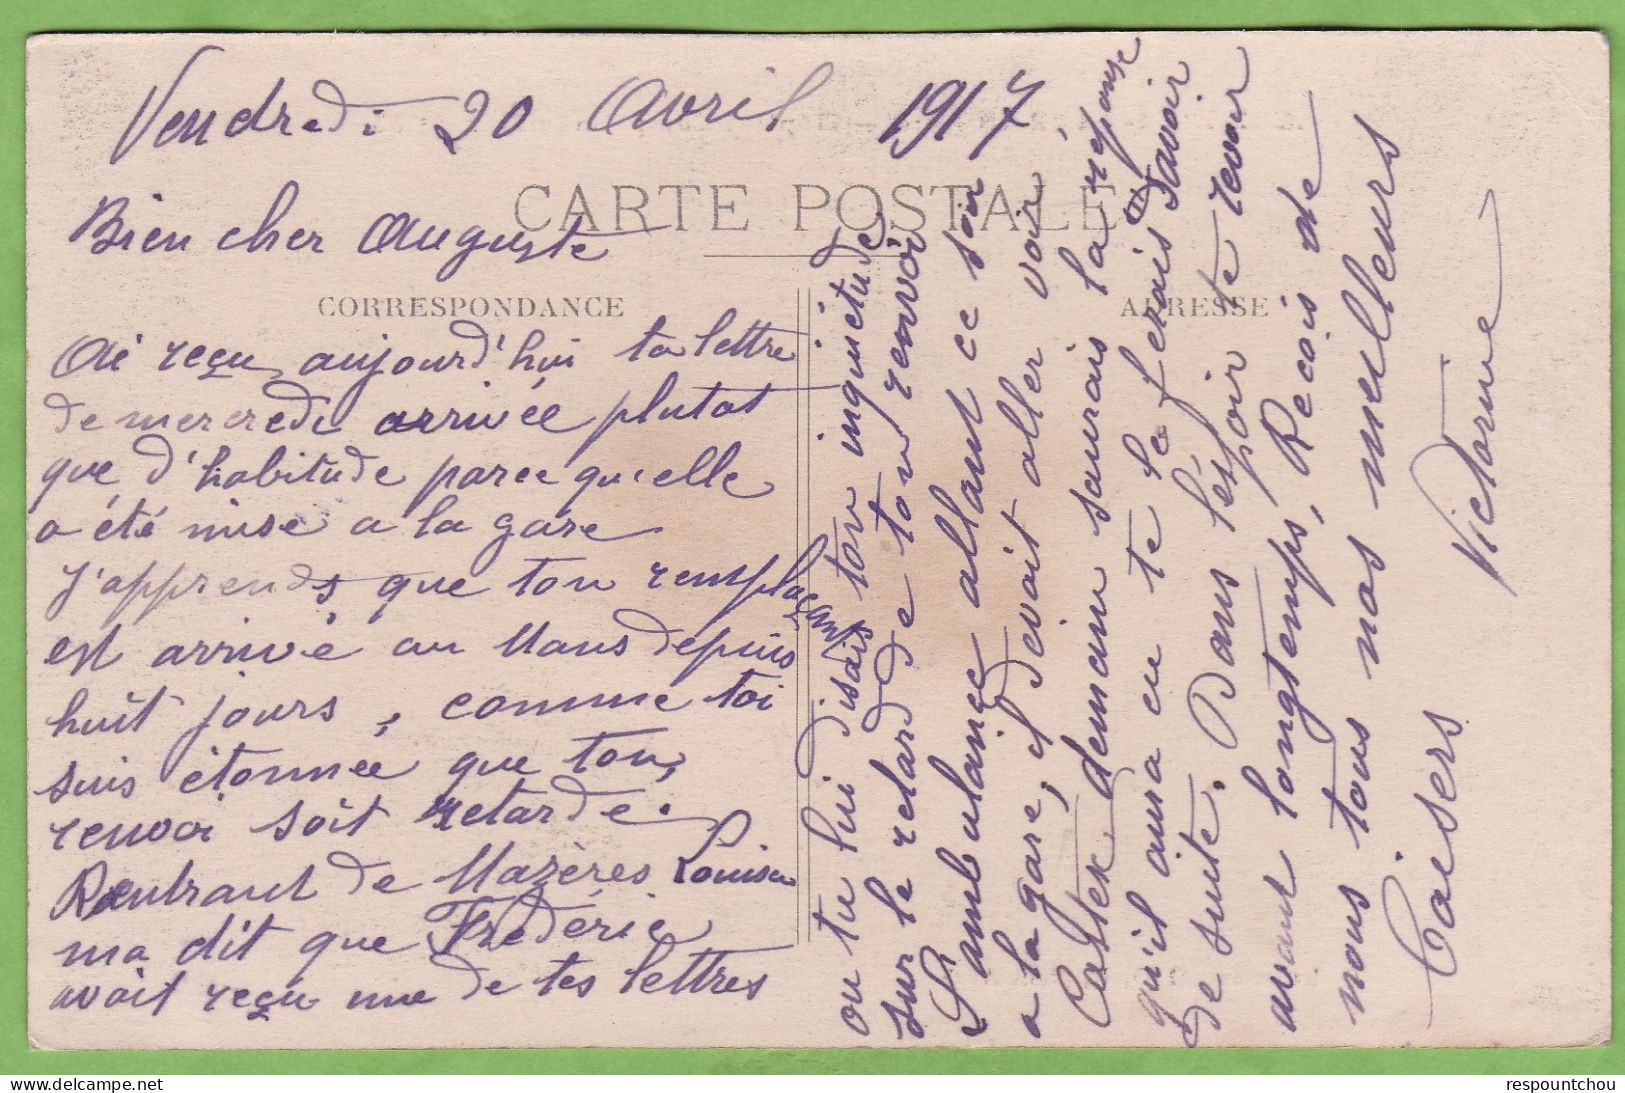 Vendredi 20 Avril 1917
CARTE POSTALE
Bien cher Auguste
CORRESPONDANCE
ADRESSE
Ai reçu aujourd'hui ta lettre
de mercredi arrivée plutot
que d'habitude parce qu'elle
a été mise a la gare
J'apprends que ton remplaçant
est arrivé au Mans depuis
huit jours, comme toi
suis étonnée que ton
renvoi soit retardé.
Rentrant de Mazères Louisa
ma dit que Frédéric
avait reçu une de tes lettres
ou tu lui disais ton inquiétude
sur le retard de ton renvoi
L'ambulance allant ce soir
a la gare, il devait aller voir
Castex demain saurais la réponse
qu'il aura eu te le ferais savoir
de suite. Dans l'éspoir te revoir
avant longtemps, Reçois de
nous tous nos meilleurs
Baisers Victorine
respountchou